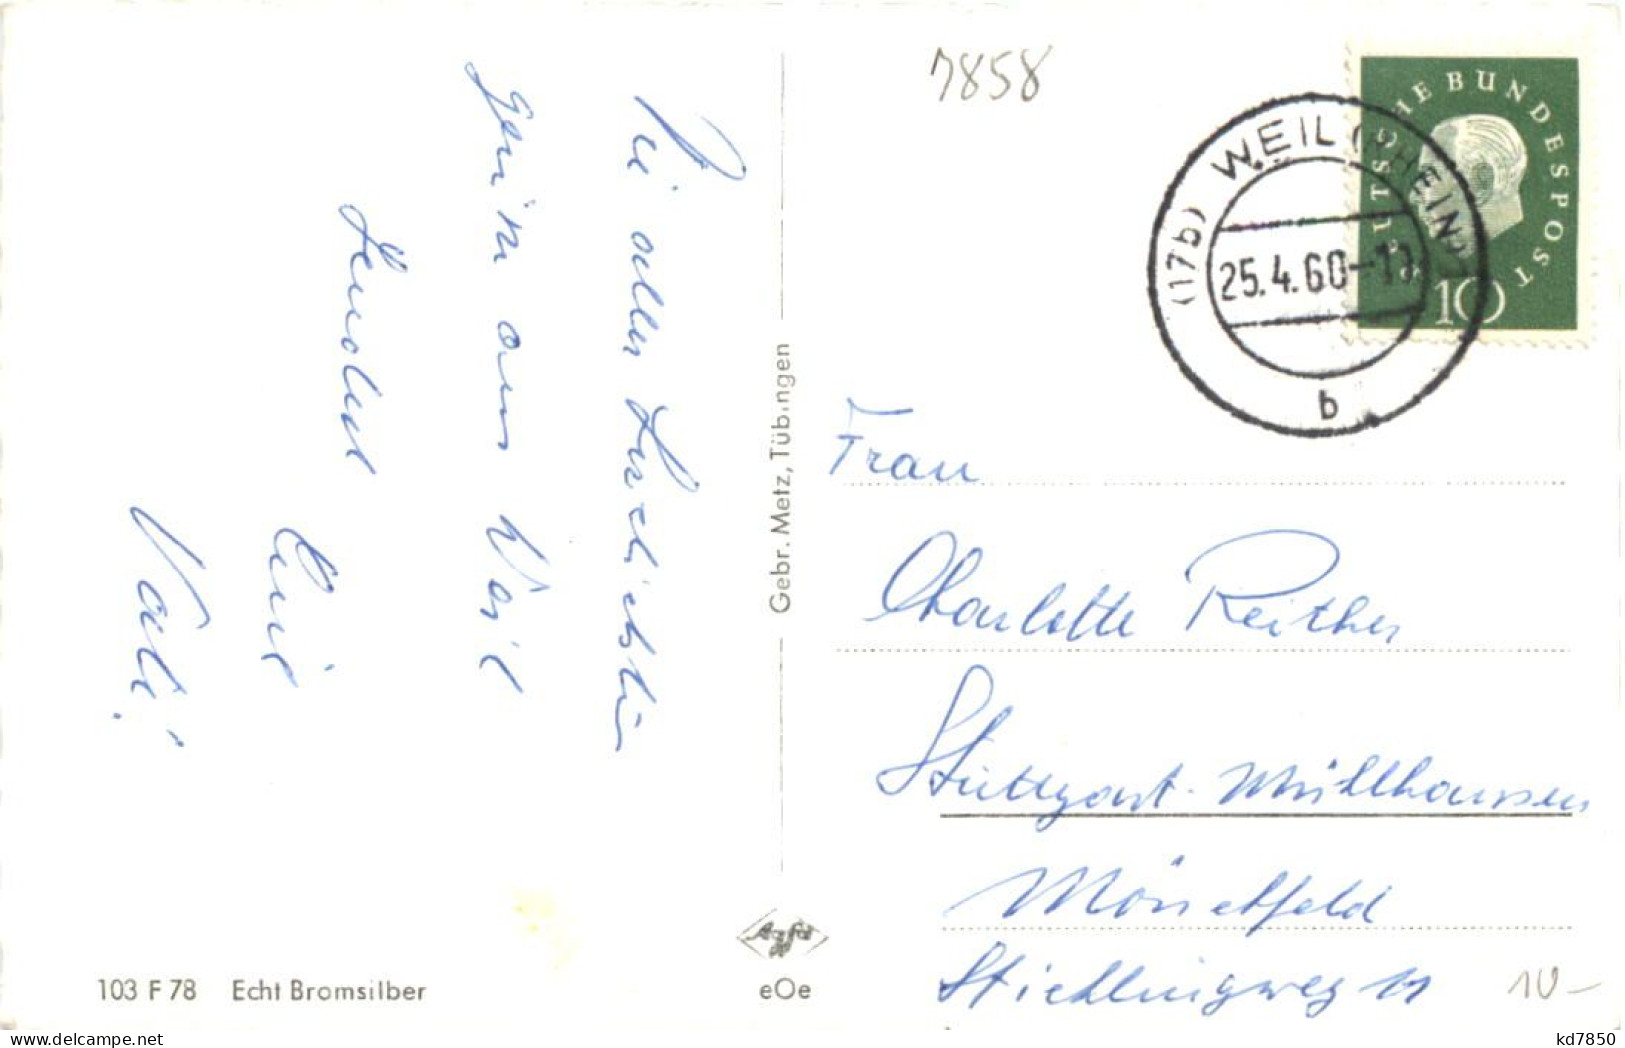 Die aller herzlichsten
aus Weil
sendet
Vati!
7858
DEUTSCHE BUNDESPOST
10
(17b) WEIL (RHEIN)
25.4.60-1
b
Gebr. Metz, Tübingen
Frau
Charlotte Reither
Stuttgart-Mühlhausen
Mönchfeld
Stichlingweg 11
10-
Agfa
eOe
103 F 78 Echt Bromsilber
delcampe.net
kd7850